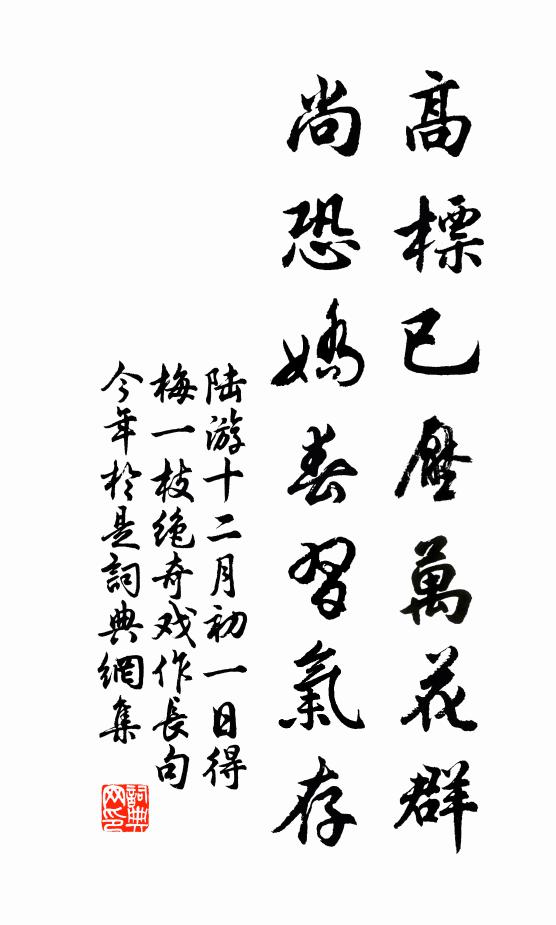 高標已壓萬花群
尚恐嬌春習氣存
陆游十二月初一日得
梅一枝绝奇戏作長句
今年於是詞典網集
詞典网印